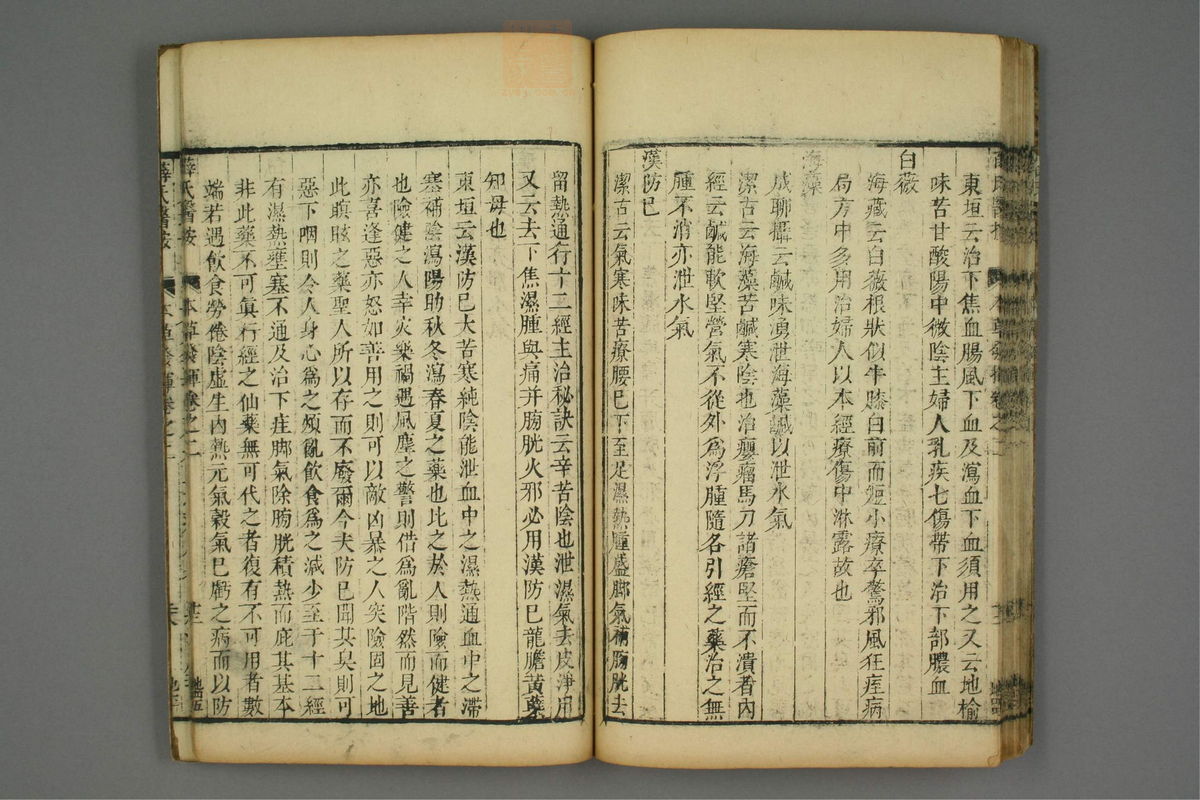 東垣云治下焦血腸風下血及瀉血下血須用之又云地榆
味苦甘酸陽中微陰主婦人乳疾七傷帶下治下部膿血
白薇
海藏云白薇根狀似牛膝白前而短小療卒驚邪風狂痓病
局方中多用治婦人以本經療傷中淋露故也
海藻
成聊攝云鹹味湧泄海藻鹹以泄水氣
潔古云海藻苦鹹寒陰也治癭瘤馬刀諸瘡堅而不潰者內
經云鹹能軟堅營氣不從外為浮腫隨各引經之藥治之無
腫不消亦泄水氣
漢防已
潔古云氣寒味苦療腰已下至足濕熱腫盛腳氣補胸胱去
留熱通行十二經主治秘訣云辛苦陰也泄濕氣去皮淨用
又云去下焦濕腫與痛并胸胱火邪必用漢防已龍膽黃蘗
知母也
東垣云漢防已大苦寒純陰能泄血中之濕熱通血中之滯
塞補陰瀉陽助秋冬瀉春夏之藥也比之於人則險而健者
也險健之人幸災樂禍遇風塵之警則借為亂階然而見善
亦喜逢惡亦怒如善用之則可以敵凶暴之人突險固之地
此瞑眩之藥聖人所以存而不廢爾今夫防已聞其臭則可
惡下咽則令人身心為之煩亂飲食為之減少至于十二經
有濕熱壅塞不通及治下疰腳氣除胸胱積熱而庇其基本
非此藥不可真行經之仙藥無可代之者復有不可用者數
端若遇飲食勞倦陰虛生內熱元氣穀氣已虧之病而以防
薛氏醫按 本草發揮卷之二